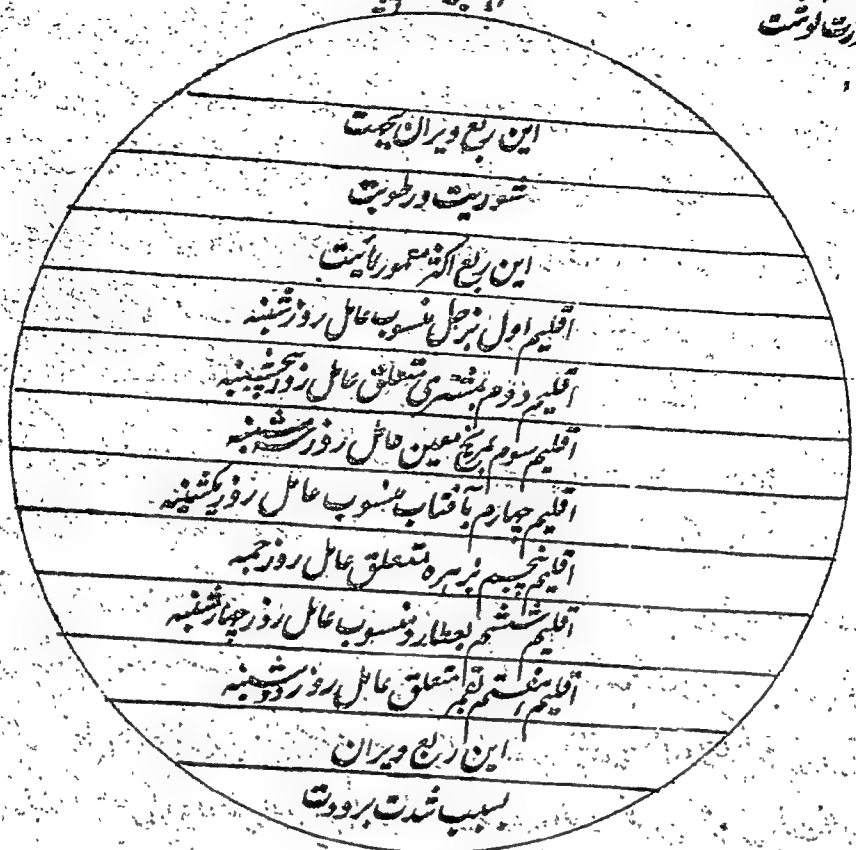 نوشت
این ربع ویران بجهت
شوریت و رطوبت
این ربع اکثر معمور
اقلیم اول بزحل منسوب عامل روز شنبه
اقلیم دوم بمشتری متعلق عامل روز پنجشنبه
اقلیم سوم بمریخ معین عامل روز سه شنبه
اقلیم چهارم بآفتاب منسوب عامل روز یکشنبه
اقلیم پنجم بزهره متعلق عامل روز جمعه
اقلیم ششم بعطارد منسوب عامل روز چهارشنبه
اقلیم هفتم بقمر متعلق عامل روز دوشنبه
این ربع ویران
بسبب شدت برودت